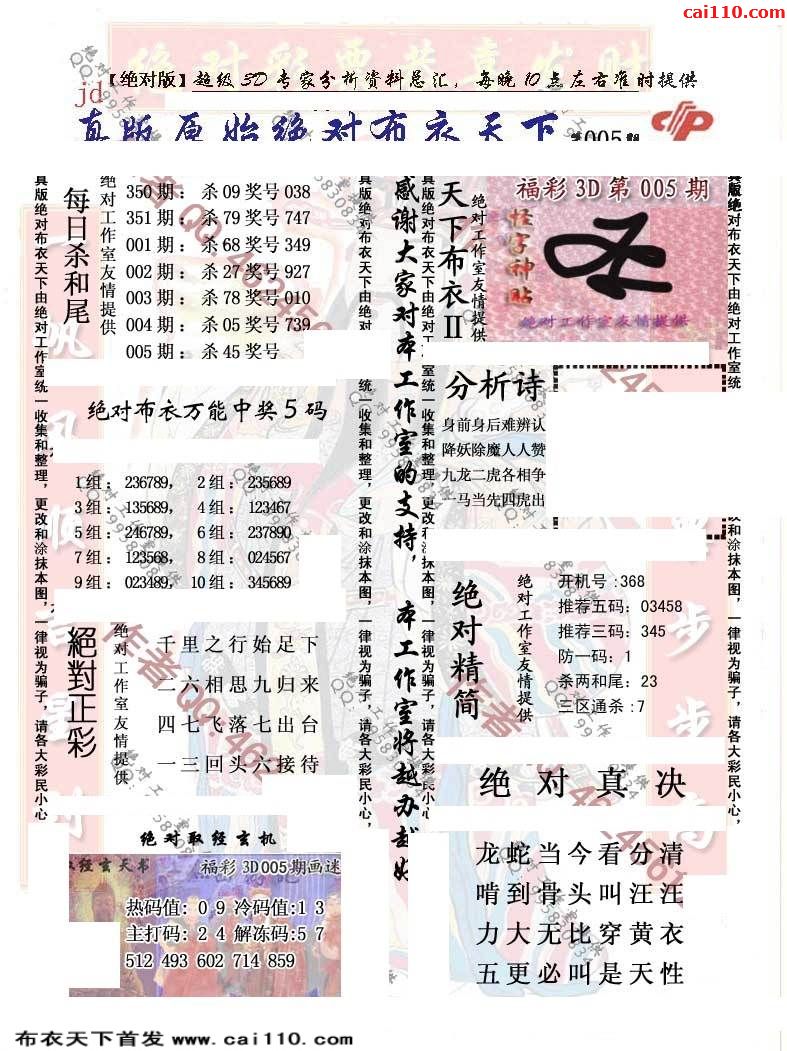 cai110.com
【绝对版】超级3D专家分析资料总汇，每晚10点左右准时提供
jd
真版原始绝对布衣天下
第005期
每日杀和尾
绝对工作室友情提供
350期：杀09奖号038
351期：杀79奖号747
001期：杀68奖号349
002期：杀27奖号927
003期：杀78奖号010
004期：杀05奖号739
005期：杀45奖号
绝对布衣万能中奖5码
1组：236789， 2组：235689
3组：135689， 4组：123467
5组：246789， 6组：237890
7组：123568， 8组：024567
9组：023489， 10组：345689
絕對正彩
绝对工作室友情提供
千里之行始足下
二六相思九归来
四七飞落七出台
一三回头六接待
绝对取经玄机
取经玄天书
福彩3D005期画迷
热码值：09冷码值:13
主打码：24解冻码:57
512 493 602 714 859
真版绝对布衣天下由绝对工作室统一收集和整理，更改和涂抹本图，一律视为骗子，请各大彩民小心，
感谢大家对本工作室的支持，本工作室将越办越好
天下布衣II
绝对工作室友情提供
福彩3D第005期
怪字神贴
绝对工作室友情提供
分析诗
身前身后难辨认
降妖除魔人人赞
九龙二虎各相争
一马当先四虎出
绝对精简
绝对工作室友情提供
开机号:368
推荐五码：03458
推荐三码：345
防一码：1
杀两和尾：23
三区通杀:7
绝对真决
龙蛇当今看分清
啃到骨头叫汪汪
力大无比穿黄衣
五更必叫是天性
布衣天下首发 www.cai110.com